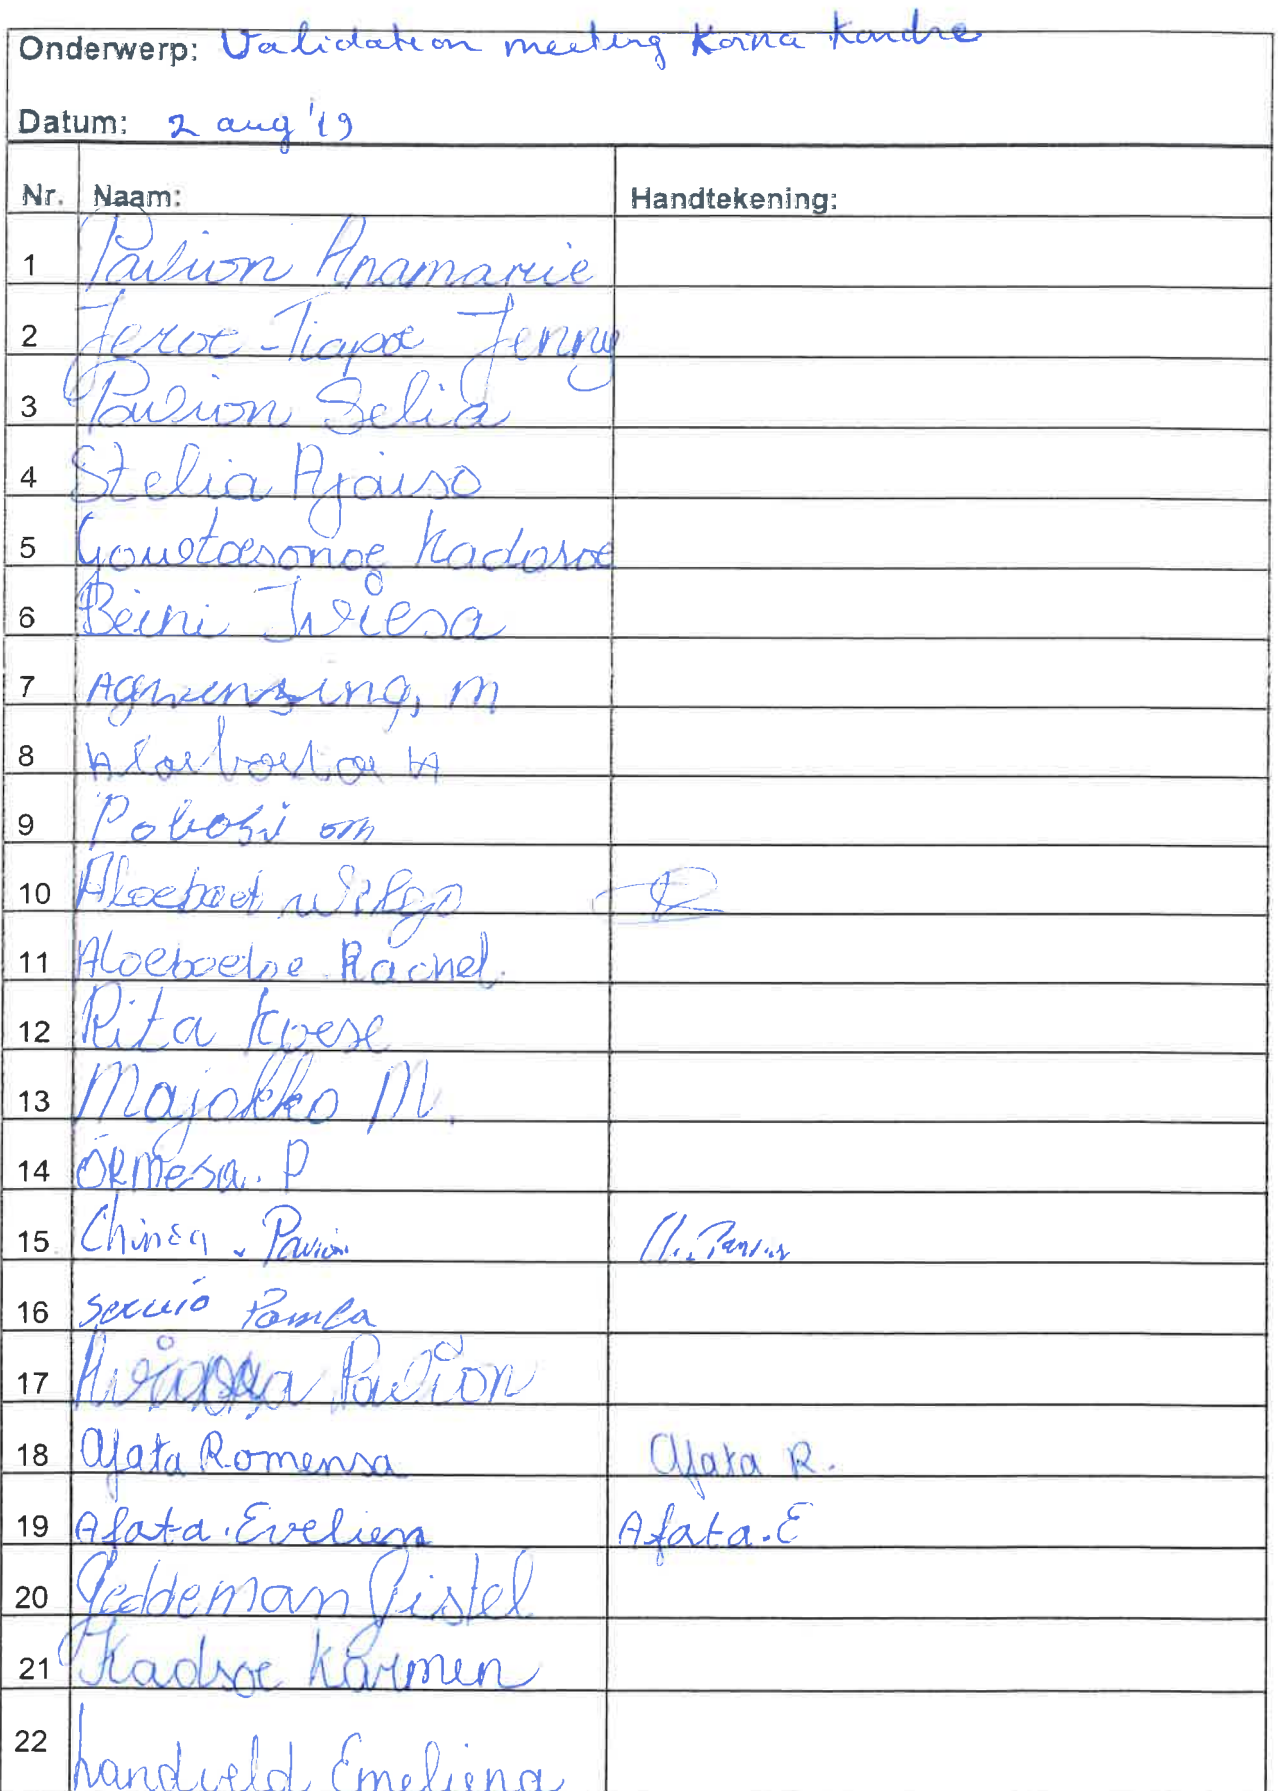 Onderwerp: Validation meeting Korna Kondre
Datum: 2 aug '19
Nr. Naam: Handtekening:
1 Pavion Anamarie
2 Jeroe-Tiapoe Jenny
3 Pavion Selia
4 Stelia Ajaiso
5 Kadosoe
6 Beini
7 m
8 A
9 Pobosi om
10 Aloeboet Wilgo
11 Aloeboetoe Rachel.
12 Rita Koese
13 Majokko M.
14 ORMesa. P
15 Chinea. Pavion
16 Pomba
17 Pavion
18 Afata Romensa Afata R.
19 Afata. Evelien Afata. E
20 Geddeman Gistel
21 Kadsoe Karmen
22 Landveld Emeliena